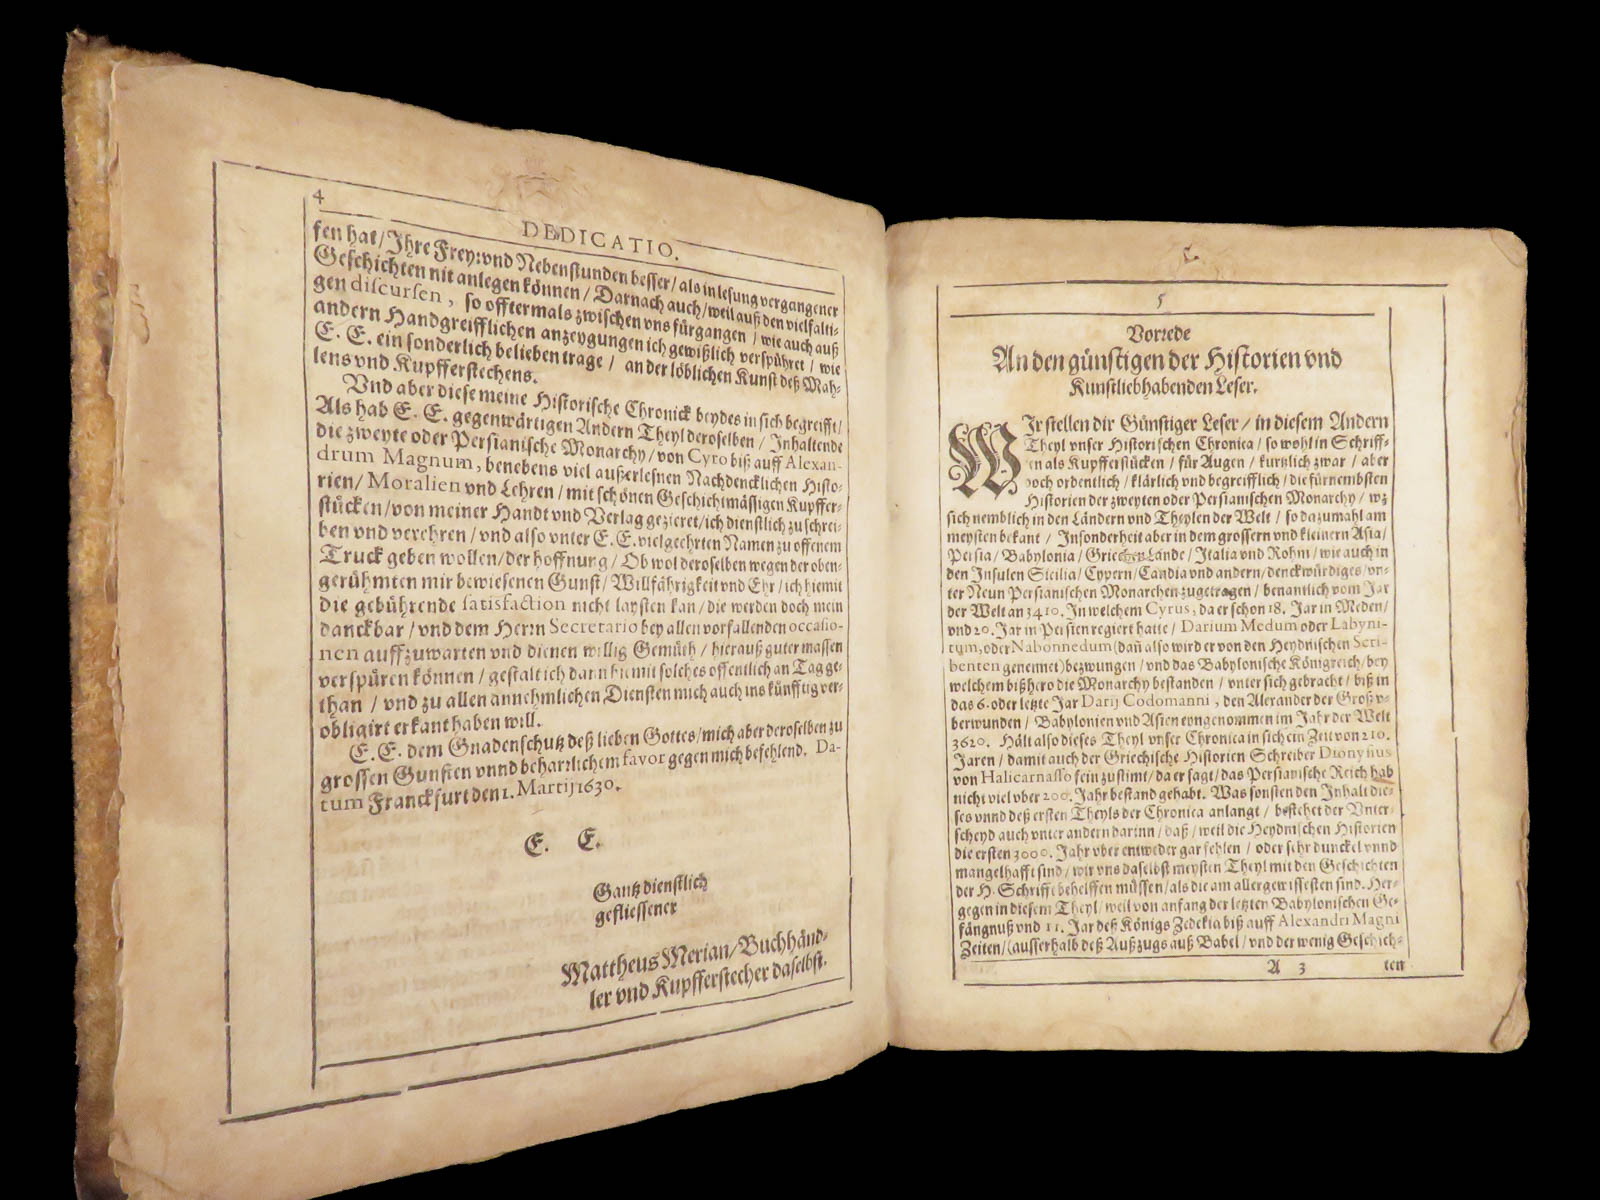 4
DEDICATIO.
sen hat/ Ihre Frey: vnd Nebenstunden besser/ als in lesung vergangener
Geschichten nit anlegen können/ Darnach auch/ weil auß den vielfalti-
gen discursen, so offtermals zwischen vns fürgangen / wie auch auß
andern Handgreifflichen anzeygungen ich gewißlich verspühret / wie
E. E. ein sonderlich belieben trage / an der löblichen Kunst deß Mah-
lens vnd Kupfferstechens.
Vnd aber diese meine Historische Chronick beydes in sich begreifft/
Als hab E. E. gegenwärtigen Andern Theyl deroselben / Inhaltende
die zweyte oder Persianische Monarchy/ von Cyro biß auff Alexan-
drum Magnum, benebens viel außerlesnen Nachdencklichen Histo-
rien/ Moralien vnd Lehren/ mit schönen Geschichtmässigen Kupffer-
stücken/ von meiner Handt vnd Verlag gezieret/ ich dienstlich zu schrei-
ben vnd verehren/ vnd also vnter E. E. vielgeehrten Namen zu offenem
Truck geben wollen/ der hoffnung/ Ob wol deroselben wegen der oben-
gerühmten mir bewiesenen Gunst/ Willfährigkeit vnd Ehr/ ich hiemit
die gebührende satisfaction nicht laysten kan/ die werden doch mein
danckbar/ vnd dem Herrn Secretario bey allen vorfallenden occasio-
nen auffzuwarten vnd dienen willig Gemüth/ hierauß guter massen
verspüren können/ gestalt ich dann hiemit solches offentlich an Tag ge-
than / vnd zu allen annehmlichen Diensten mich auch ins künfftig ver-
obligirt erkant haben will.
E. E. dem Gnadenschutz deß lieben Gottes/ mich aber deroselben zu
grossen Gunsten vnnd beharrlichem favor gegen mich befehlend. Da-
tum Franckfurt den 1. Martij 1630.
E. E.
Gantz dienstlich
gefliessener
Mattheus Merian/ Buchhänd-
ler vnd Kupfferstecher daselbst.
5
Vorrede
An den günstigen der Historien vnd
Kunstliebhabenden Leser.
WIr stellen dir Günstiger Leser/ in diesem Andern
Theyl vnser Historischen Chronica / so wohl in Schriff-
ten als Kupfferstücken / für Augen / kurtzlich zwar / aber
doch ordentlich / klärlich vnd begreifflich / die fürnembsten
Historien der zweyten oder Persianischen Monarchy / wz
sich nemblich in den Ländern vnd Theylen der Welt / so dazumahl am
meysten bekant / Insonderheit aber in dem grossern vnd kleinern Asia/
Persia/ Babylonia/ Griechen Lande/ Italia vnd Rohm/ wie auch in
den Insulen Sicilia/ Cypern/ Candia vnd andern/ denckwürdiges/ vn-
ter Neun Persianischen Monarchen zugetragen/ benantlich vom Jar
der Welt an 3410. In welchem Cyrus, da er schon 18. Jar in Meden/
vnd 20. Jar in Persien regiert hatte/ Darium Medum oder Labyni-
tum, oder Nabonnedum (dañ also wird er von den Heydnischen Scri-
benten genennet) bezwungen/ vnd das Babylonische Königreich/ bey
welchem bißhero die Monarchy bestanden/ vnter sich gebracht/ biß in
das 6. oder letzte Jar Darij Codomanni, den Alexander der Groß v-
berwunden/ Babylonien vnd Asien eyngenommen im Jahr der Welt
3620. Hält also dieses Theyl vnser Chronica in sich ein Zeit von 210.
Jaren/ damit auch der Griechische Historien Schreiber Dionysius
von Halicarnasso fein zustimt/ da er sagt/ das Persianische Reich hab
nicht viel vber 200. Jahr bestand gehabt. Was sonsten den Inhalt die-
ses vnnd deß ersten Theyls der Chronica anlangt / bestehet der Vnter-
scheyd auch vnter andern darinn/ daß/ weil die Heydnischen Historien
die ersten 3000. Jahr vber entweder gar fehlen / oder sehr dunckel vnnd
mangelhafft sind/ wir vns daselbst meysten Theyl mit den Geschichten
der H. Schrifft behelffen müssen/ als die am allergewissesten sind. Her-
gegen in diesem Theyl/ weil von anfang der letzten Babylonischen Ge-
fängnuß vnd 11. Jar deß Königs Zedekia biß auff Alexandri Magni
Zeiten/ (ausserhalb deß Außzugs auß Babel/ vnd der wenig Geschich-
A 3 ten